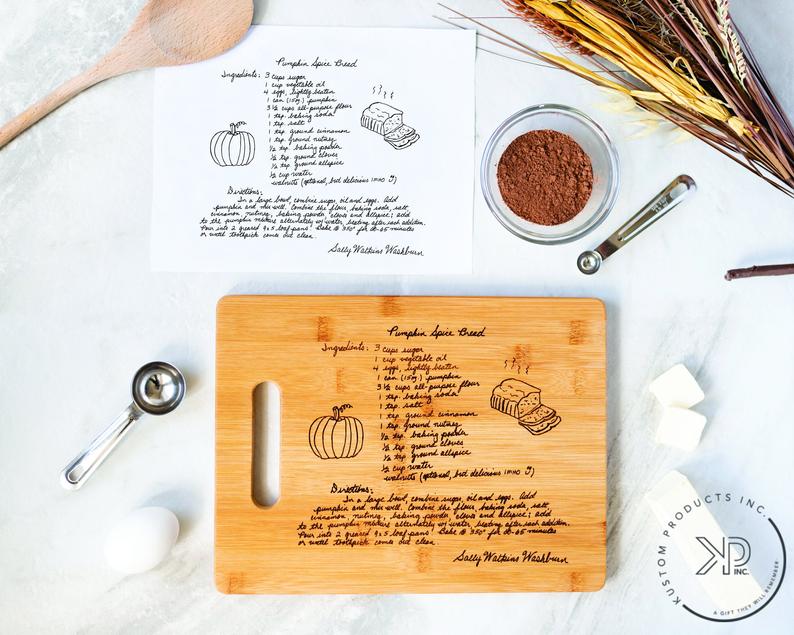 Pumpkin Spice Bread
Ingredients: 3 cups sugar
1 cup vegetable oil
4 eggs, lightly beaten
1 can (15oz) pumpkin
3½ cups all-purpose flour
1 tsp. baking soda
1 tsp. salt
1 tsp. ground cinnamon
1 tsp. ground nutmeg
½ tsp. baking powder
½ tsp. ground cloves
½ tsp. ground allspice
½ cup water
walnuts (optional, but delicious IMHO)
Directions:
In a large bowl, combine sugar, oil and eggs. Add
pumpkin and mix well. Combine the flour, baking soda, salt,
cinnamon, nutmeg, baking powder, cloves and allspice; add
to the pumpkin mixture alternately w/ water, beating after each addition.
Pour into 2 greased 9x5 loaf pans. Bake @ 350° for 60-65 minutes
or until toothpick comes out clean.
Sally Watkins Washburn
Pumpkin Spice Bread
Ingredients: 3 cups sugar
1 cup vegetable oil
4 eggs, lightly beaten
1 can (15oz) pumpkin
3½ cups all-purpose flour
1 tsp. baking soda
1 tsp. salt
1 tsp. ground cinnamon
1 tsp. ground nutmeg
½ tsp. baking powder
½ tsp. ground cloves
½ tsp. ground allspice
½ cup water
walnuts (optional, but delicious IMHO)
Directions:
In a large bowl, combine sugar, oil and eggs. Add
pumpkin and mix well. Combine the flour, baking soda, salt,
cinnamon, nutmeg, baking powder, cloves and allspice; add
to the pumpkin mixture alternately w/ water, beating after each addition.
Pour into 2 greased 9x5 loaf pans. Bake @ 350° for 60-65 minutes
or until toothpick comes out clean.
Sally Watkins Washburn
KUSTOM PRODUCTS INC.
KP
INC.
A GIFT THEY WILL REMEMBER